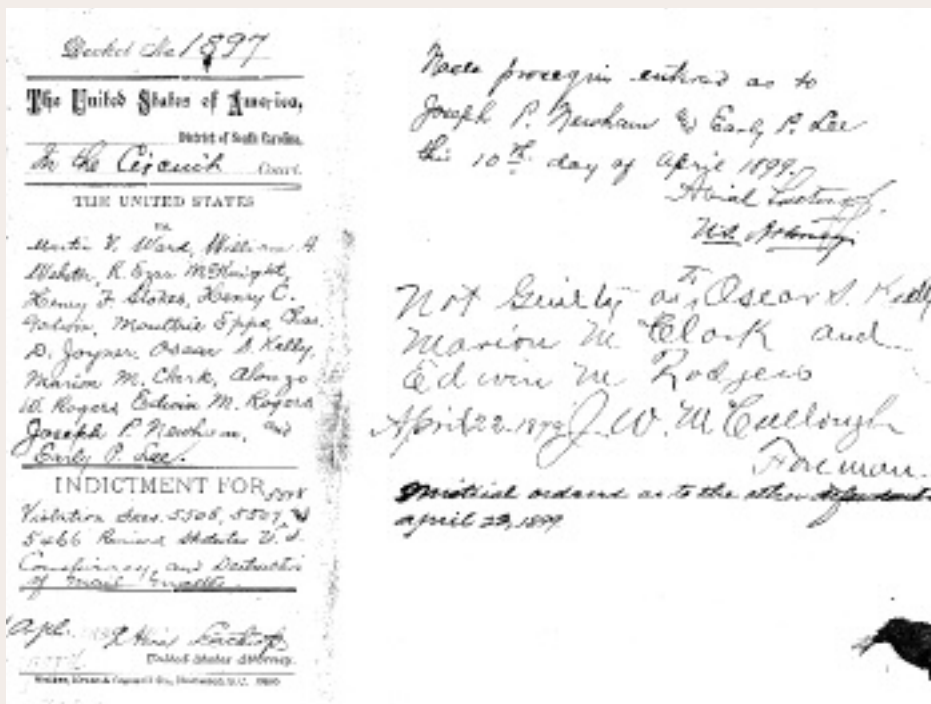 Docket No 1897
The United States of America,
District of South Carolina.
In the Circuit Court.
THE UNITED STATES
vs.
V. Ward, William A.
Webster, R. Ezra McKnight,
Henry F. Stokes, Henry C.
Moultrie Epps, Chas.
D. Joyner, Oscar S. Kelly,
Marion M. Clark, Alonzo
W. Rogers Edwin M. Rogers
Joseph P. Newham, and
Early P. Lee.
INDICTMENT FOR
Violation Secs. 5508, 5507, &
5466 Revised Statutes U.S.
Conspiracy, and Destruction
of Mail Matter.
Apl.
United States Attorney.
entered as to
Joseph P. Newham & Early P. Lee
this 10th day of April 1899.
Abial Lathrop
U.S. Attorney
Not Guilty as to Oscar S. Kelly
Marion M Clark and
Edwin M Rodgers
April 22-1899 J. W. McCullough
Foreman.
Mistrial ordered as to the other defendants
april 22, 1899